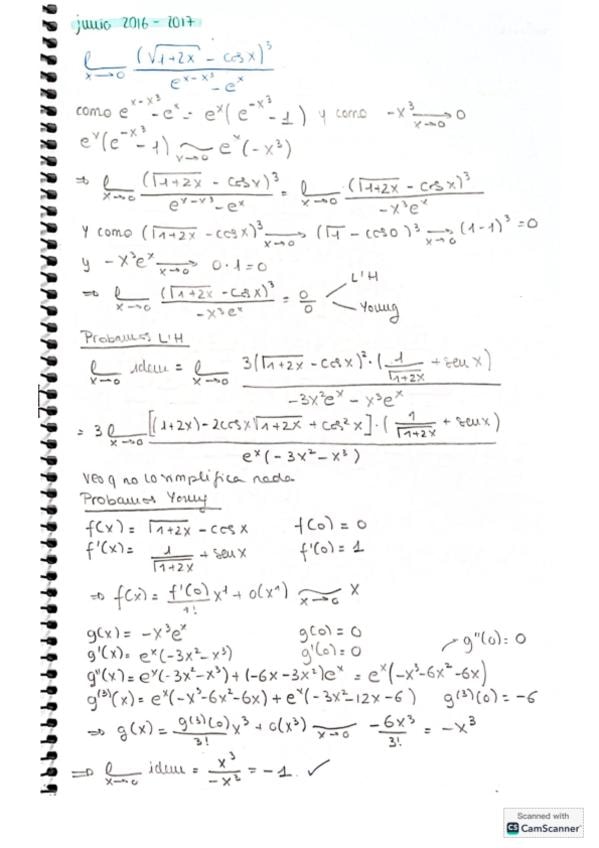 junio 2016-2017
lim x→0 (√1+2x - cos x)³ / e^(x-x³) - e^x
como e^(x-x³) - e^x = e^x(e^(-x³) - 1) y como -x³ →x→0 0
e^x(e^(-x³) - 1) ~x→0 e^x(-x³)
⇒ lim x→0 (√1+2x - cos x)³ / e^(x-x³) - e^x = lim x→0 (√1+2x - cos x)³ / -x³e^x
Y como (√1+2x - cos x)³ →x→0 (√1 - cos 0)³ →x→0 (1-1)³ = 0
y -x³e^x →x→0 0·1 = 0
⇒ lim x→0 (√1+2x - cos x)³ / -x³e^x = 0/0 L'H Young
Probamos L'H
lim x→0 idem = lim x→0 3(√1+2x - cos x)²·(1/√1+2x + sen x) / -3x²e^x - x³e^x
= 3 lim x→0 [(1+2x) - 2cos x√1+2x + cos²x]·(1/√1+2x + sen x) / e^x(-3x² - x³)
Veo q no la simplifica nada
Probamos Young
f(x) = √1+2x - cos x f(0) = 0
f'(x) = 1/√1+2x + sen x f'(0) = 1
⇒ f(x) = f'(0)/1! x¹ + o(x¹) ~x→0 x
g(x) = -x³e^x g(0) = 0
g'(x) = e^x(-3x² - x³) g'(0) = 0 g''(0) = 0
g''(x) = e^x(-3x² - x³) + (-6x - 3x²)e^x = e^x(-x³ - 6x² - 6x)
g⁽³⁾(x) = e^x(-x³ - 6x² - 6x) + e^x(-3x² - 12x - 6) g⁽³⁾(0) = -6
⇒ g(x) = g⁽³⁾(0)/3! x³ + o(x³) ~x→0 -6x³/3! = -x³
⇒ lim x→0 idem = x³/-x³ = -1 ✓
Scanned with
CS CamScanner